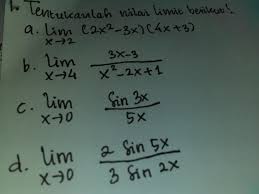 1. Tentukanlah nilai limit berikut!
a. lim x→2 (2x²-3x)(4x+3)
b. lim x→4 3x-3 / x²-2x+1
c. lim x→0 Sin 3x / 5x
d. lim x→0 2 Sin 5x / 3 Sin 2x